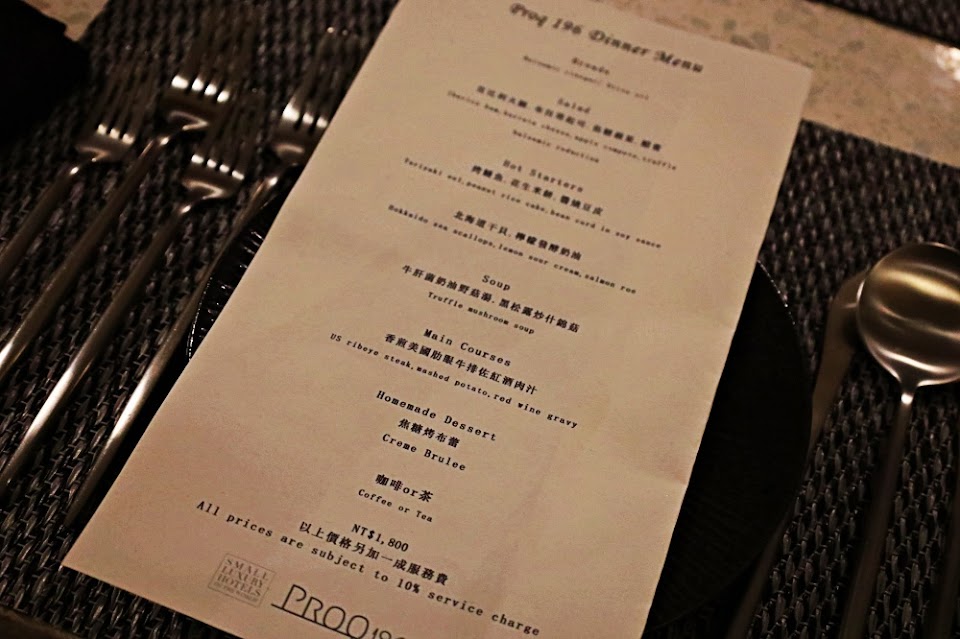 Proq 196 Dinner Menu
Salad
Iberico ham,burrata cheese,apple compote,truffle
balsamic reduction
Hot Starters
烤鰻魚.花生米餅.醬燒豆皮
Teriyaki eel,peanut rice cake,bean curd in soy sauce
北海道干貝.檸檬發酵奶油
Hokkaido sea scallops,lemon sour cream,salmon roe
Soup
牛肝菌奶油野菇湯.黑松露炒什錦菇
Truffle mushroom soup
Main Courses
香煎美國肋眼牛排佐紅酒肉汁
US ribeye steak,mashed potato,red wine gravy
Homemade Dessert
焦糖烤布蕾
Creme Brulee
咖啡or茶
Coffee or Tea
NT$1,800
以上價格另加一成服務費
All prices are subject to 10% service charge
SMALL
LUXURY
HOTELS
OF THE WORLD
PROQ196